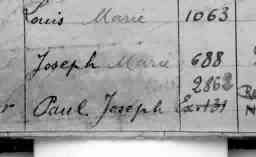 Louis Marie 1063
Joseph Marie 688
2862
Paul Joseph